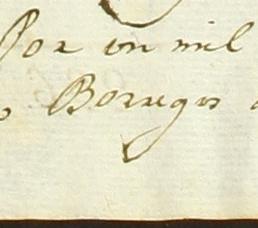 Por un mil
Borregos